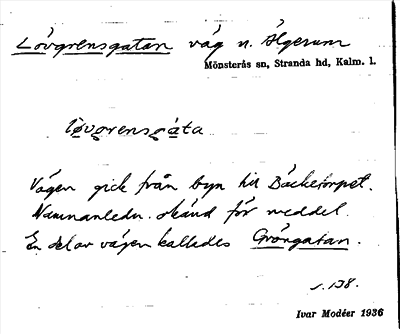 Lövgrensgatan väg n. Ålgerum
Mönsterås sn, Stranda hd, Kalm. l.
lövgrensgáta
Vägen gick från byn till Bäcketorpet.
Namnanledn. okänd för meddel.
En del av vägen kallades Gröngatan.
s. 138.
Ivar Modéer 1936